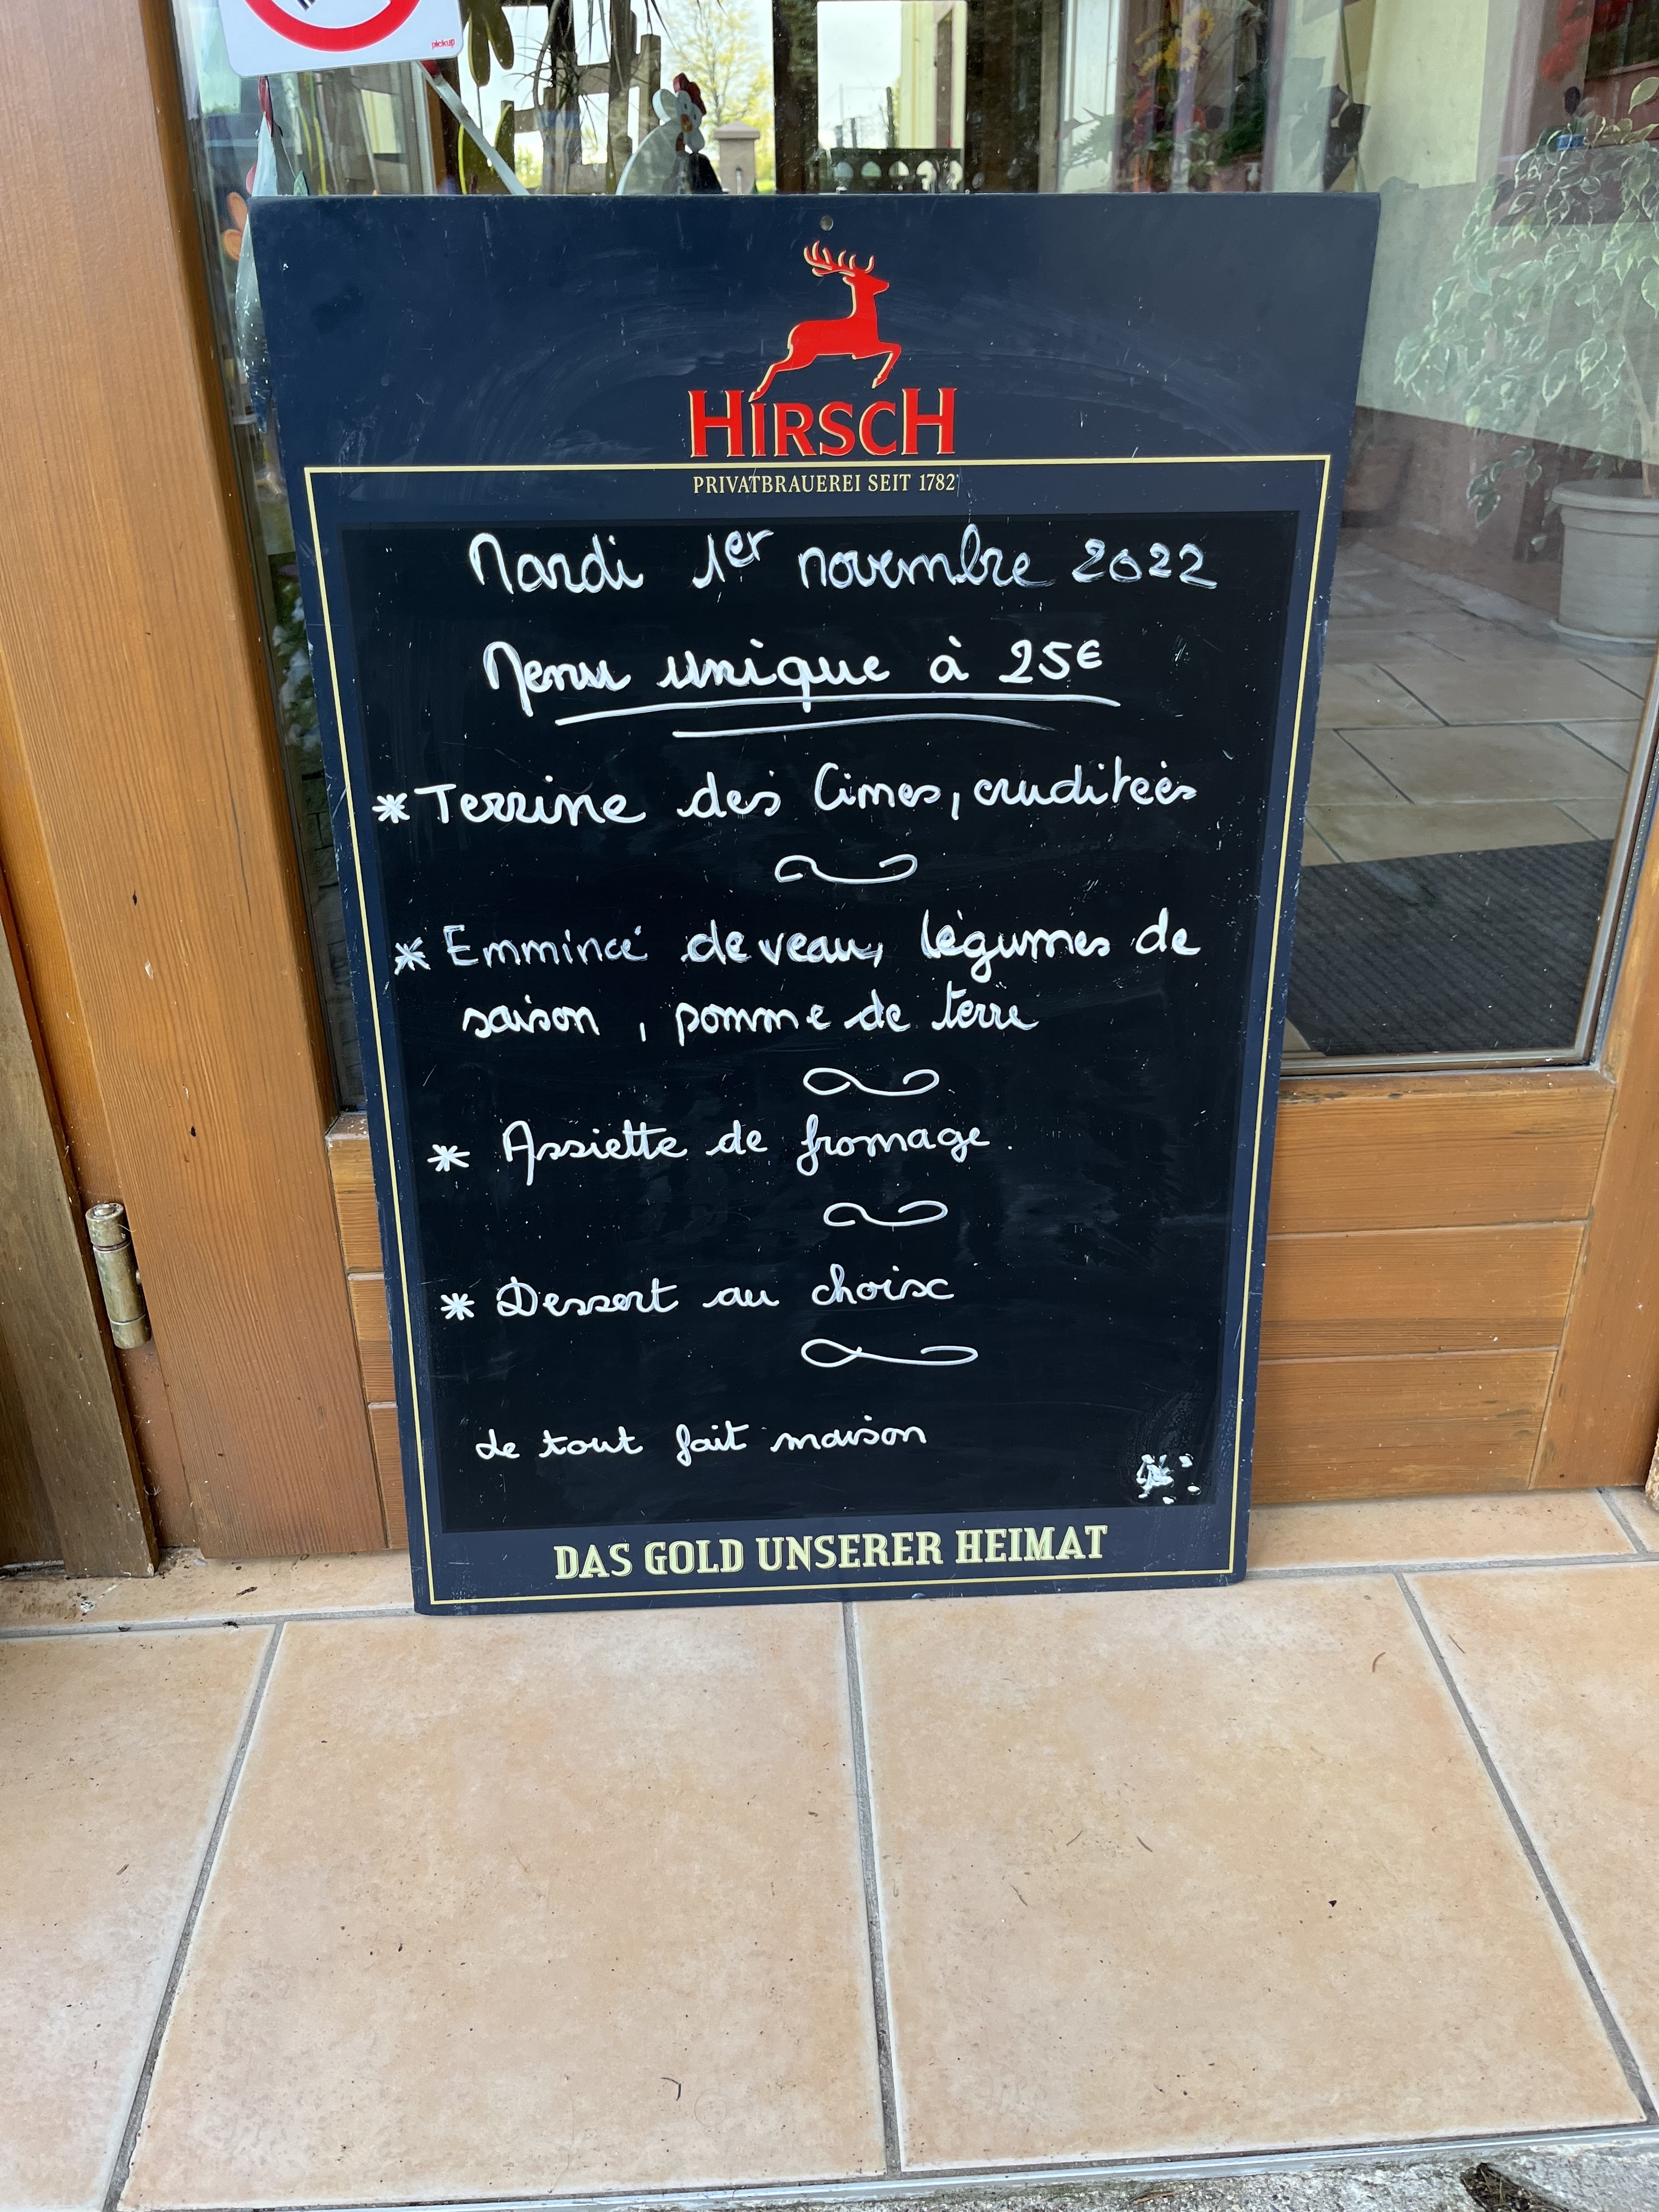 pickup
HIRSCH
PRIVATBRAUEREI SEIT 1782
Mardi 1er novembre 2022
Menu unique à 25€
* Terrine des Cimes, cruditées
* Emmincé de veau, légumes de
saison , pomme de terre
* Assiette de fromage.
* Dessert au choix
Le tout fait maison
DAS GOLD UNSERER HEIMAT